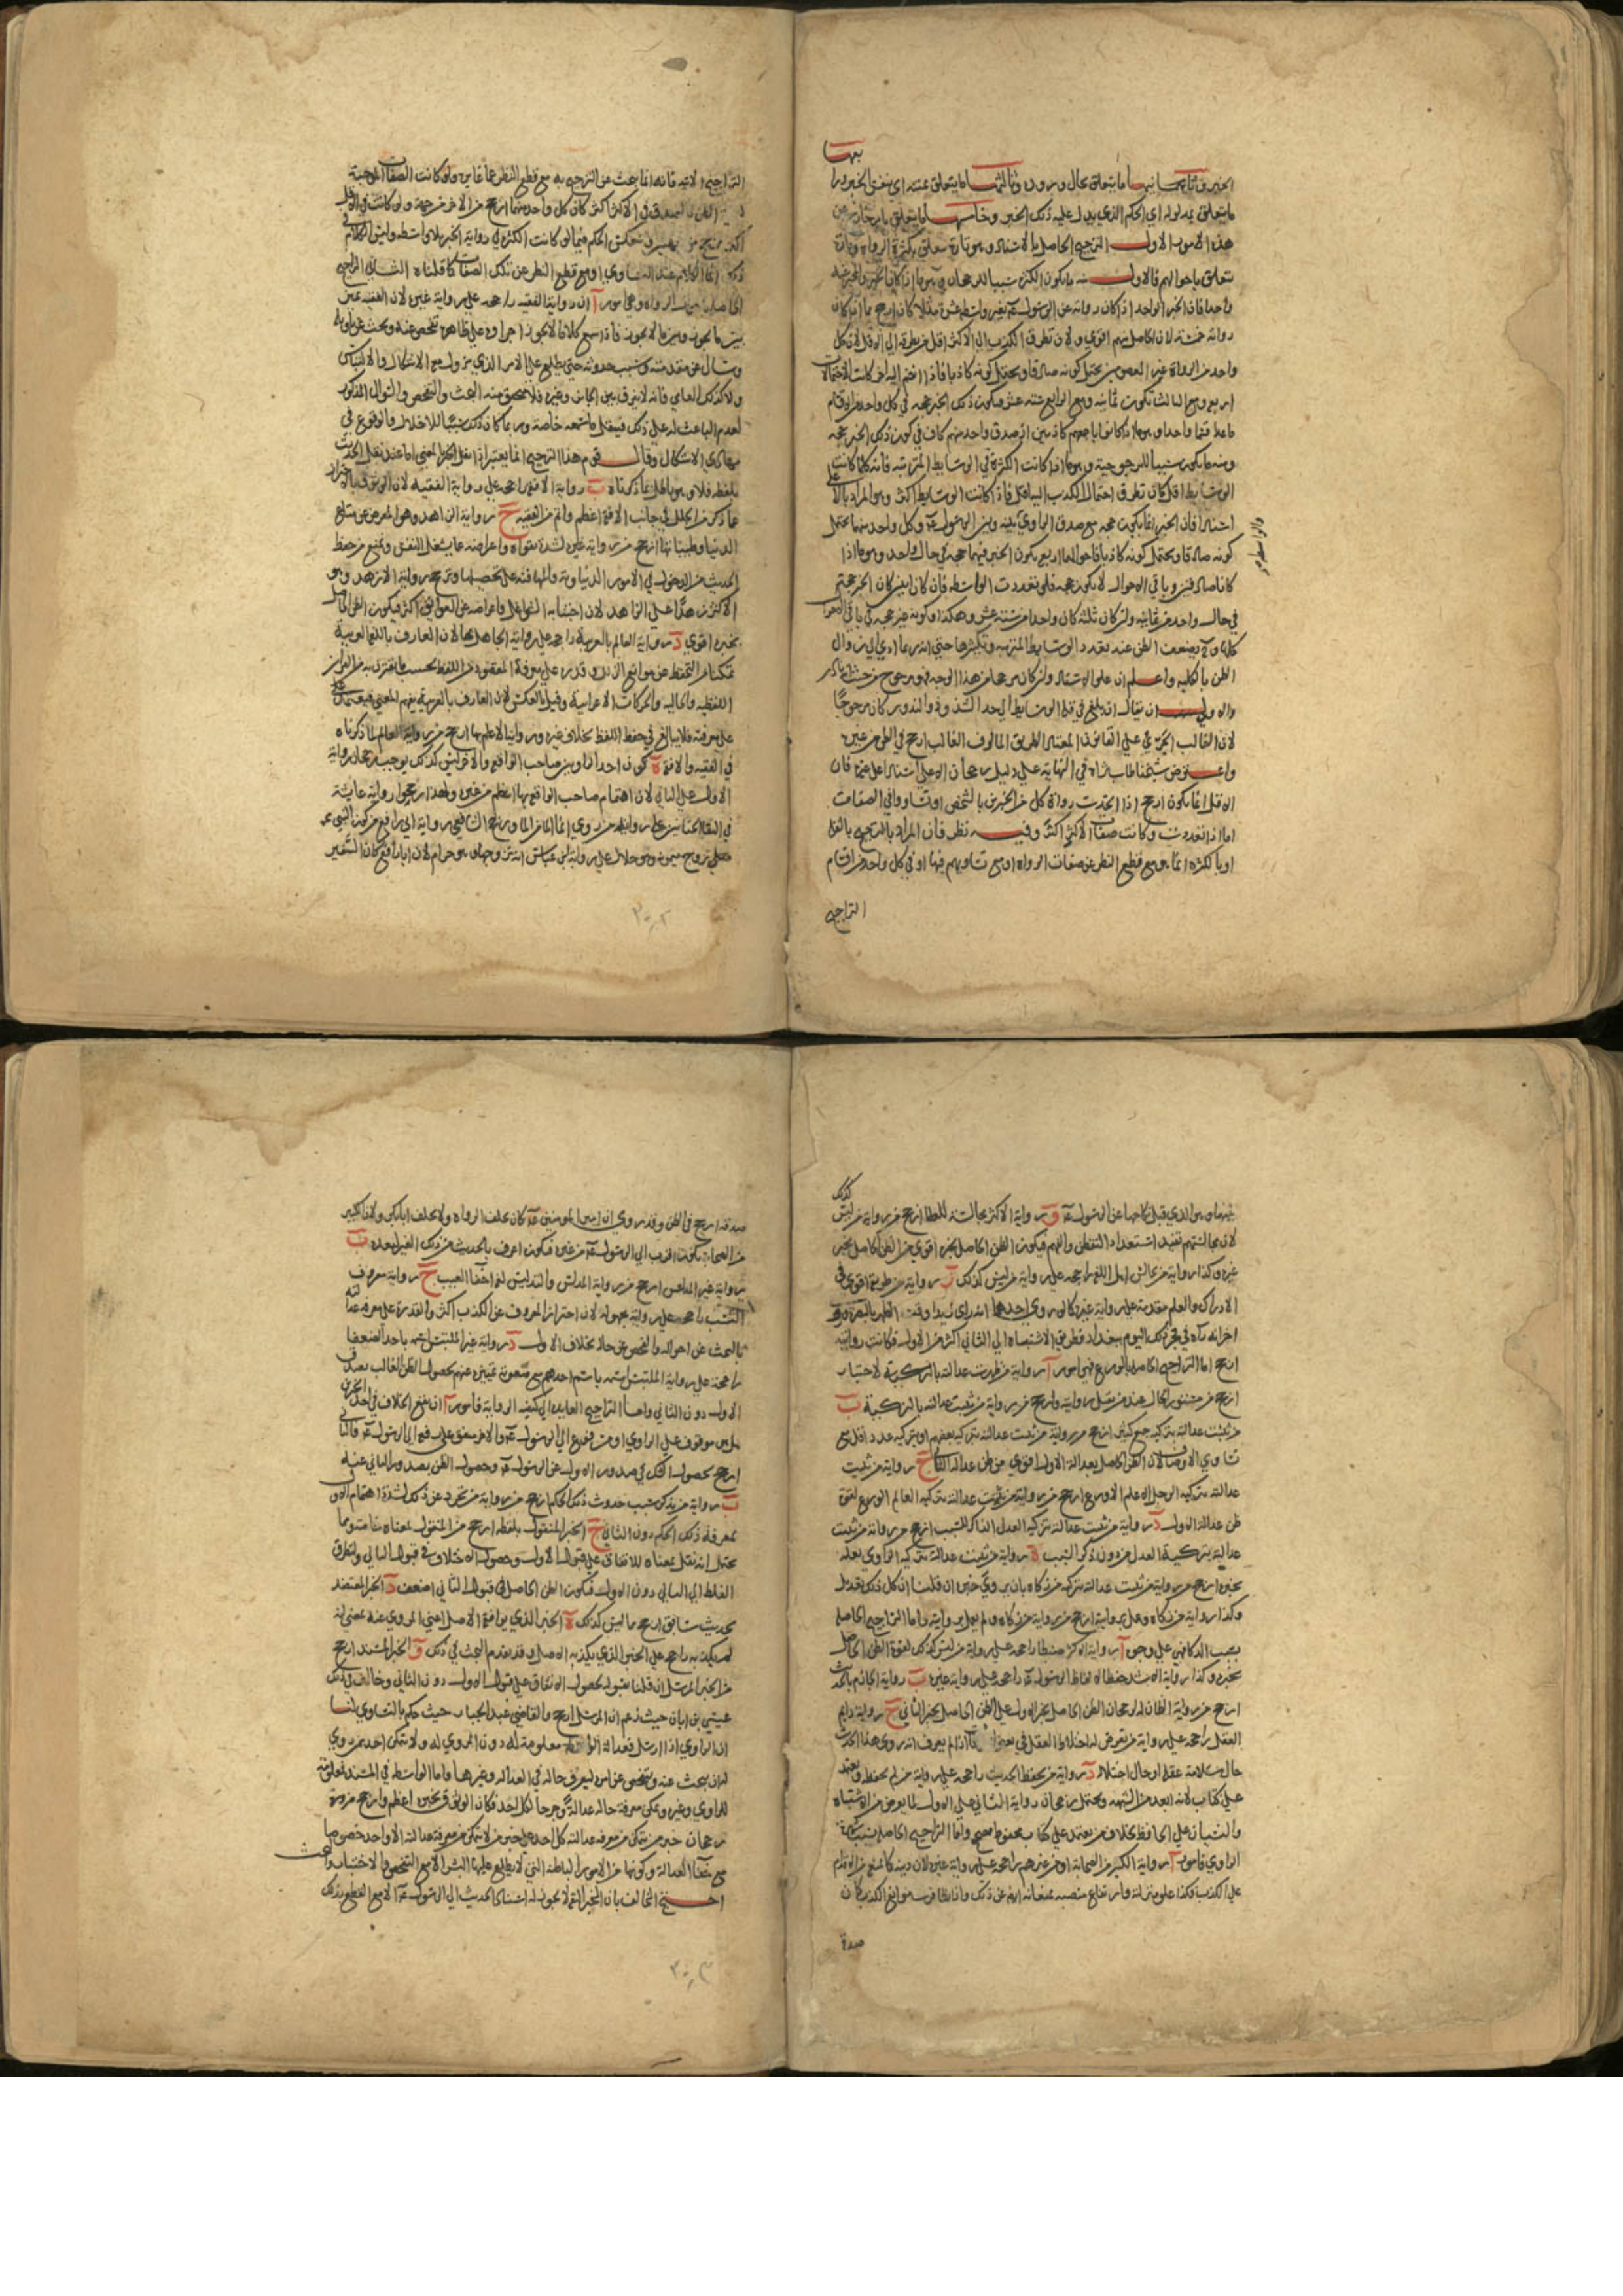 بعضها
الخبر وثانيها ما يتعلق بحال وروده وثالثها ما يتعلق بمتنه اي بنفس الخبر ورابعها
ما يتعلق بمدلوله اي الحكم الذي يدل عليه ذلك الخبر وخامسها ما يتعلق بامر خارج عن
هذه الامور الاول الترجيح الحاصل بالاسناد وهو تارة يتعلق بكثرة الرواة وتارة
يتعلق باحوالهم فالاول منه ما يكون الكثرة سببا للرجحان
واحدا فان الخبر الواحد اذا كان رواته عن الرسول عم بغير واسطة عشرة مثلا كان ارجح مما اذا كان
رواته خمسة لان الحاصل منهم اقوى ولان تطرق الكذب الى الاكثر اقل من تطرقه الى الاقل لان كل
واحد من الرواة غير المعصومين يحتمل كونه صادقا ويحتمل كونه كاذبا فاذا انضم اليه اخر كانت الاحتمالات
اربع ومع الثالث تكون ثمانية ومع الرابع ستة عشر فيكون ذلك الخبر حجة في كل واحد من الاقسام
ما عدا قسما واحدا وهو ما اذا كانوا باجمعهم كاذبين اذ صدق واحد منهم كاف في كون ذلك الخبر حجة
ومنه ما يكون سببا للمرجوحية وهو ما اذا كانت الكثرة في الوسايط المترتبة فانه كلما كانت
الوسايط اقل كان تطرق احتمال الكذب اليها اقل فاذا كانت الوسايط اكثر وهو المراد بالاعلى
اسنادا فان الخبر انما يكون حجة مع صدق الراوي بينه وبين الرسول عم وكل واحد منهما يحتمل
والواسطة
كونه صادقا ويحتمل كونه كاذبا فاحوالهما اربع يكون الخبر فيهما حجة في حال واحد وهو ما اذا
كانا صادقين وباقي الاحوال لا يكون حجة فلو تعددت الواسطة فان كان اثنين كان الخبر حجة
في حال واحد من ثمانية ولو كان ثلثة كان واحدا من ستة عشر وهكذا ويكون غير حجة في باقي الاحوال
كلها وح يضعف الظن عند تعدد الوسايط المترتبة وتكثرها حتى انه ربما ادى الى زوال
الظن بالكلية واعلم ان علو الاسناد وان كان راجحا من هذا الوجه فهو مرجوح من حيث
والاولى ان يقال ان بلغ في قلة الوسايط الى حد الشذوذ والندور كان مرجوحا
لان الغالب الجري على القانون المعتاد الطريق المالوف الغالب ارجح في الظن من غيره
واعترض شيخنا طاب ثراه في النهاية على دليل رجحان الاعلى اسنادا على غيره فان
الاقل انما يكون ارجح اذا اتحدت رواة كل من الخبرين بالشخص او تساووا في الصفات
اما اذا تعددت وكانت صفات الاكثر اكثر وفيه نظر فان المراد بالترجيح بالقلة
او بالكثرة انما هو مع قطع النظر عن صفات الرواة او مع تساويهم فيها او في كل واحد من اقسام
التراجيح
التراجيح الاتية فانه انما يبحث عن الترجيح به مع قطع النظر عما غايره ولو كانت الصفات الموجبة
الظن بالصدق في الاكثر اكثر كان كل واحد منهما ارجح من الاخر من جهة ولو كانت في الاقل
الحكم فيما لو كانت الكثرة في رواية الخبر بلا واسطة وليس الكلام في
ذلك انما الكلام عند التساوي او مع قطع النظر عن تلك الصفات كما قلناه الثاني الراجح
الحاصل من الرواة وهي امور آ ان رواية الفقيه راجحة على رواية غيره لان الفقيه يميز
بين ما يجوز وبين ما لا يجوز فاذا سمع كلاما لا يجوز اجراؤه على ظاهره تفحص عنه وبحث عن تاويله
وسال عن مقدمته وسبب حدوثه حتى يطلع على الامر الذي يزول معه الاشكال والالتباس
ولا كذلك العامي فانه لا يفرق بين الجايز وغيره فلا يتحقق منه البحث والتفحص والسؤال المذكور
لعدم الباعث له على ذلك فينقل ما سمعه خاصة وربما كان ذلك سببا للاخلال والوقوع في
مهاوي الاشكال وقال قوم هذا الترجيح انما يعتبر اذا نقل الخبر بالمعنى اما عند نقل الحديث
بلفظه فلا وهو باطل لما ذكرناه ب رواية الافقه راجحة على رواية الفقيه لان الوثوق باحتراز
عما ذكر من الخلل في جانب الافقه اعظم واتم من الفقيه ج رواية الزاهد وهو المعرض عن متاع
الدنيا وطيباتها ارجح من رواية غيره لشدة تقواه واعراضه عما يشغل النفس ويمنع من حفظ
الحديث من الدخول في الامور الدنياوية والتهافت على تحصيلها وترجح رواية الازهد وهو
الاكثر زهدا على الزاهد لان اجتنابه الشواغل واعراضه عن العوايق اكثر فيكون الظن الحاصل
بخبره اقوى د رواية العالم بالعربية راجحة على رواية الجاهل بها لان العارف باللغة العربية
متمكن من التحفظ عن مواقع الزلل وقدره على معرفة المقصود من اللفظ بحسب ما يقترن به من القراين
اللفظية والحالية والحركات الاعرابية وقيل بالعكس لان العارف بالعربية يفهم المعنى فيعتمد
على معرفته فلا يبالغ في حفظ اللفظ بخلاف غيره ورواية الاعلم بها ارجح من رواية العالم لما ذكرناه
في الفقيه والافقه ه كون احد الراويين صاحب الواقعة والاخر ليس كذلك يوجب رجحان رواية
الاول على الثاني لان اهتمام صاحب الواقعة بها اعظم من غيره ولهذا رجحوا رواية عايشة
في التقاء الختانين على رواية من روى انما الماء من الماء ورجح الشافعي رواية ابي رافع من كون النبي عم
تزوج ميمونة وهو حلال على رواية ابن عباس انه تزوجها وهو حرام لان ابا رافع كان السفير
كذلك
بينهما وهو الذي قبل نكاحها عن الرسول عم و رواية الاكثر مجالسة للعلماء ارجح من رواية من ليس
لان مجالستهم تفيد استعداد التفطن والفهم فيكون الظن الحاصل بخبره اقوى من الظن الحاصل بخبر
غيره وكذا رواية من جالس اهل اللغة راجحة على رواية من ليس كذلك ز رواية من طريقه اقوى في
الادراك والعلم مقدمة على رواية غيره كما لو روى احدهما انه راى زيدا وقت الظهر بالبصرة وروى
اخر انه راه في سحر ذلك اليوم ببغداد فطريق الاشتباه الى الثاني اكثر من الاول فكانت روايته
ارجح اما التراجيح الحاصلة بالورع فهي امور آ رواية من ظهرت عدالته بالتزكية
ارجح من مستور الحال عند من يقبل روايته وارجح من رواية من ثبتت عدالته بالتزكية ب
من ثبتت عدالته بتزكية جمع كثير ارجح من رواية من ثبتت عدالته بتزكية بعضهم او بتزكية عدد اقل مع
تساوي الاوصاف لان الظن الحاصل بعدالة الاول اقوى من ظن عدالة الثاني ج رواية من ثبتت
عدالته بتزكية الرجل الاعلم الاورع ارجح من رواية من ثبتت عدالته بتزكية العالم الورع لقوة
ظن عدالة الاول د رواية من ثبتت عدالته بتزكية العدل الذاكر للسبب ارجح من رواية من ثبتت
عدالته بتزكية العدل من دون ذكر السبب ه رواية من ثبتت عدالته بتزكية الراوي بعمله
بخبره ارجح من رواية من ثبتت عدالته بتزكية من زكاه بان يروي خبره ان قلنا ان كل ذلك تعديل
وكذا رواية من زكاه وعمل بروايته ارجح من رواية من زكاه ولم يعمل بروايته واما التراجيح الحاصلة
بسبب الذكاء فهي على وجوه آ رواية الاكثر ضبطا راجحة على رواية من ليس كذلك لقوة الظن الحاصل
بخبره وكذا رواية الاشد حفظا لالفاظ الرسول عم راجحة على رواية غيره ب رواية الجازم بالحديث
ارجح من رواية الظان له لرجحان الظن الحاصل بخبر الاول على الظن الحاصل بخبر الثاني ج رواية دايم
العقل راجحة على رواية من يعرض له اختلاط العقل في بعض اذا لم يعرف انه روى هذا الحديث
حال سلامة عقله او حال اختلاله د رواية من يحفظ الحديث راجحة على رواية من لم يحفظه ويعتمد
على كتاب لانه ابعد من الشبهة ويحتمل رجحان رواية الثاني على الاول لما يعرض من الاشتباه
والنسيان على الحافظ بخلاف من يعتمد على كتاب محفوظ مصحح واما التراجيح الحاصلة بسبب شهرة
الراوي فامور آ رواية الكبير من الصحابة او من غيرهم راجحة على رواية غيره لان دينه كما يمنع من الاقدام
على الكذب فكذا علو منزلته وارتفاع منصبه يمنعانه ايضا عن ذلك
صدقه
صدقه ارجح في الظن وقد روي ان امير المومنين عم كان يحلف الرواة ولا يحلف ابا بكر ولان الكبير
من الصحابة يكون اقرب الى الرسول عم من غيره فيكون اعرف بالحديث من ذلك الغير لبعده ب
رواية غير المدلس ارجح من رواية المدلس والتدليس لغة اخفاء العيب ج رواية معروف
النسب راجحة على رواية مجهوله لان احتراز المعروف عن الكذب اكثر والقدرة على معرفة عدالته
بالبحث عن احواله والفحص عن حاله بخلاف الاول د رواية غير الملتبس اسمه باحد الضعفا
راجحة على رواية الملتبس اسمه باسم احدهم مع صعوبة تمييزه عنهم بحصول الظن الغالب بصدق
الاول دون الثاني واما التراجيح العايدة الى كيفية الرواية فامور آ ان يقع الخلاف في احد الخبرين
هل هو موقوف على الراوي او مرفوع الى الرسول عم والاخر متفق على رفعه الى الرسول عم فالثاني
ارجح بحصول الشك في صدور الاول عن الرسول عم وحصول الظن بصدور الثاني عنه
ب رواية من يذكر سبب حدوث ذلك الحكم ارجح من رواية من تجرد عن ذلك لشدة اهتمام الاول
بمعرفة ذلك الحكم دون الثاني ج الخبر المنقول بلفظه ارجح من المنقول بمعناه خاصة ومما
يحتمل انه نقل بمعناه للاتفاق على قبول الاول وحصول الاختلاف في قبول الثاني ولتطرق
الغلط الى الثاني دون الاول فيكون الظن الحاصل في قبول الثاني اضعف د الخبر المعتضد
بحديث سابق ارجح مما ليس كذلك ه الخبر الذي يوافقه الاصل اعني المروي عنه بمعنى انه
لم يكذبه راجح على الخبر الذي يكذبه الاصل وقد تقدم البحث في ذلك و الخبر المسند ارجح
من الخبر المرسل ان قلنا بقبوله لحصول الاتفاق على قبول الاول دون الثاني وخالف في ذلك
عيسى بن ابان حيث زعم ان المرسل ارجح والقاضي عبد الجبار حيث حكم بالتساوي لنا
ان الراوي اذا ارسل فعدالة الواسطة معلومة له دون المروي له ولا يتمكن احد من روي
له ان يبحث عنه ويتفحص عن امره ليعرف حاله في العدالة وغيرها واما الواسطة في المسند فمعلومة
للراوي وغيره ويمكن معرفة حاله عدالة وجرحا لكل احد فكان الوثوق بخبره اعظم وارجح
رجحان خبر من يتمكن من معرفة عدالته كل احد على خبر من لا يتمكن من معرفة عدالته الا واحد خصوصا
مع خفاء العدالة وكونها من الامور الباطنة التي لا يطلع عليها البشر الا مع التفحص والاختبار والبحث
احتج المخالف بان المخبر الثقة لا يجوز له اسناد الحديث الى الرسول عم الا مع القطع بذلك